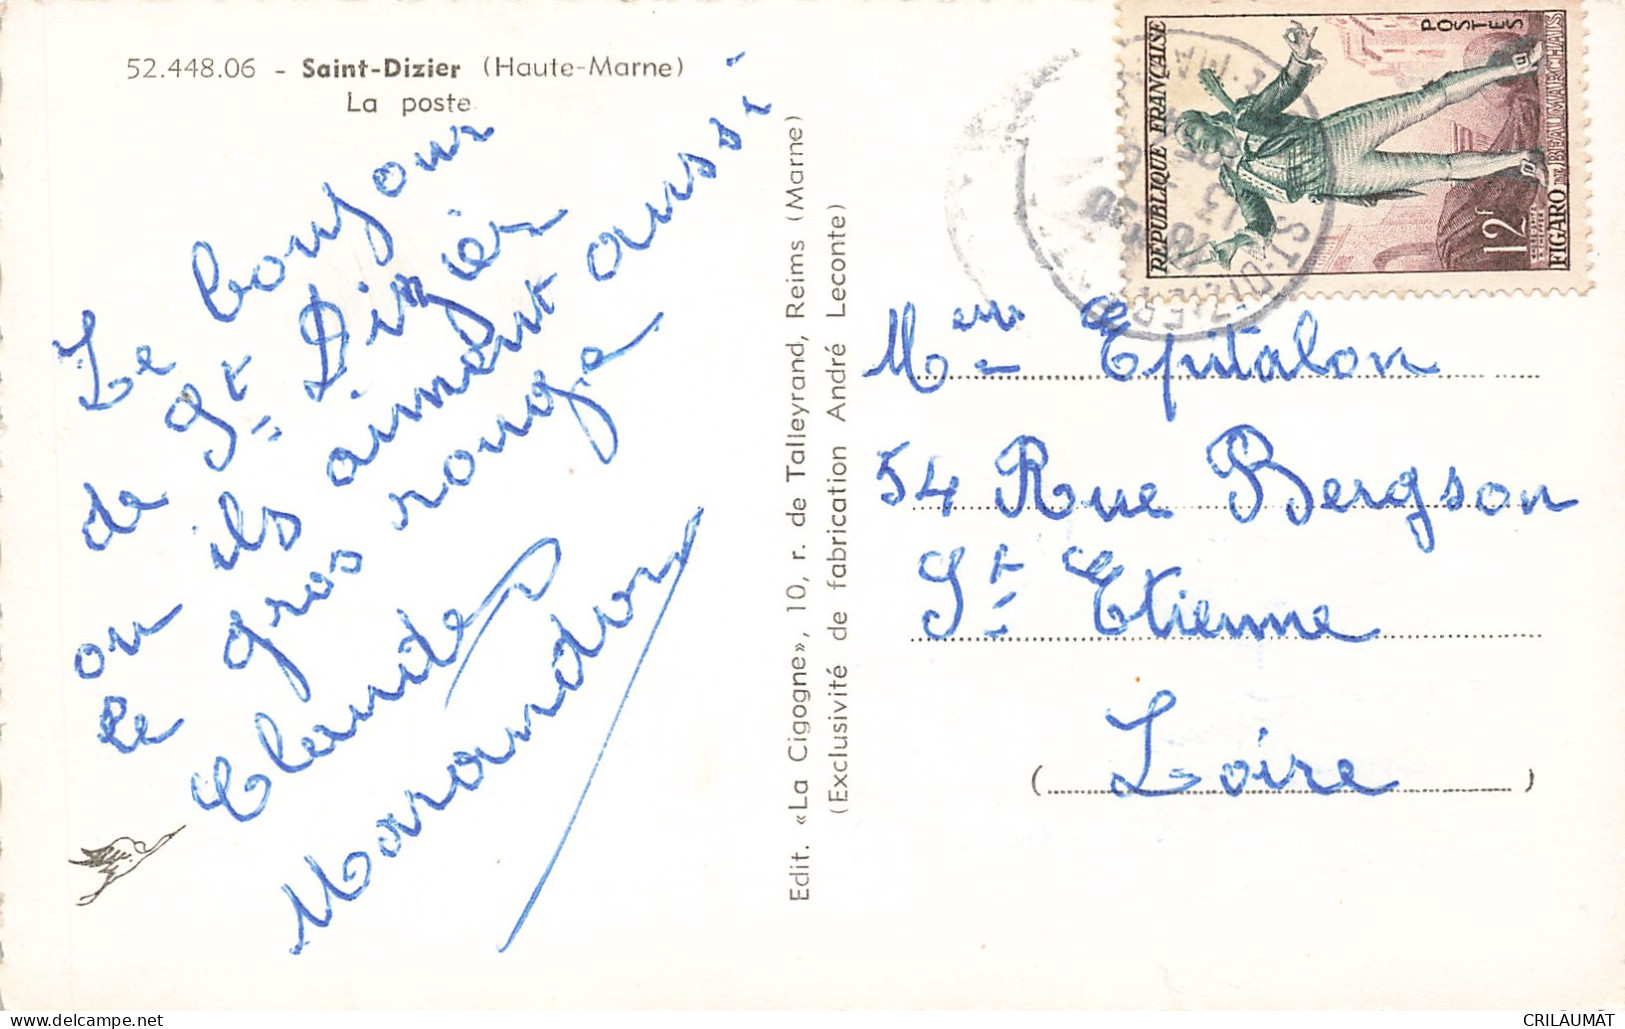 52.448.06 - Saint-Dizier (Haute-Marne)
La poste
Le bonjour
de St Dizier
ou ils aiment aussi
le gros rouge
Claudes
Marandon
Edit. «La Cigogne», 10, r. de Talleyrand, Reims (Marne)
(Exclusivité de fabrication André Leconte)
REPUBLIQUE FRANÇAISE
POSTES
12f
FIGARO DE BEAUMARCHAIS
ST-DIZIER
Mme Epitalon
54 Rue Bergson
St Etienne
(Loire)
CRILAUMAT